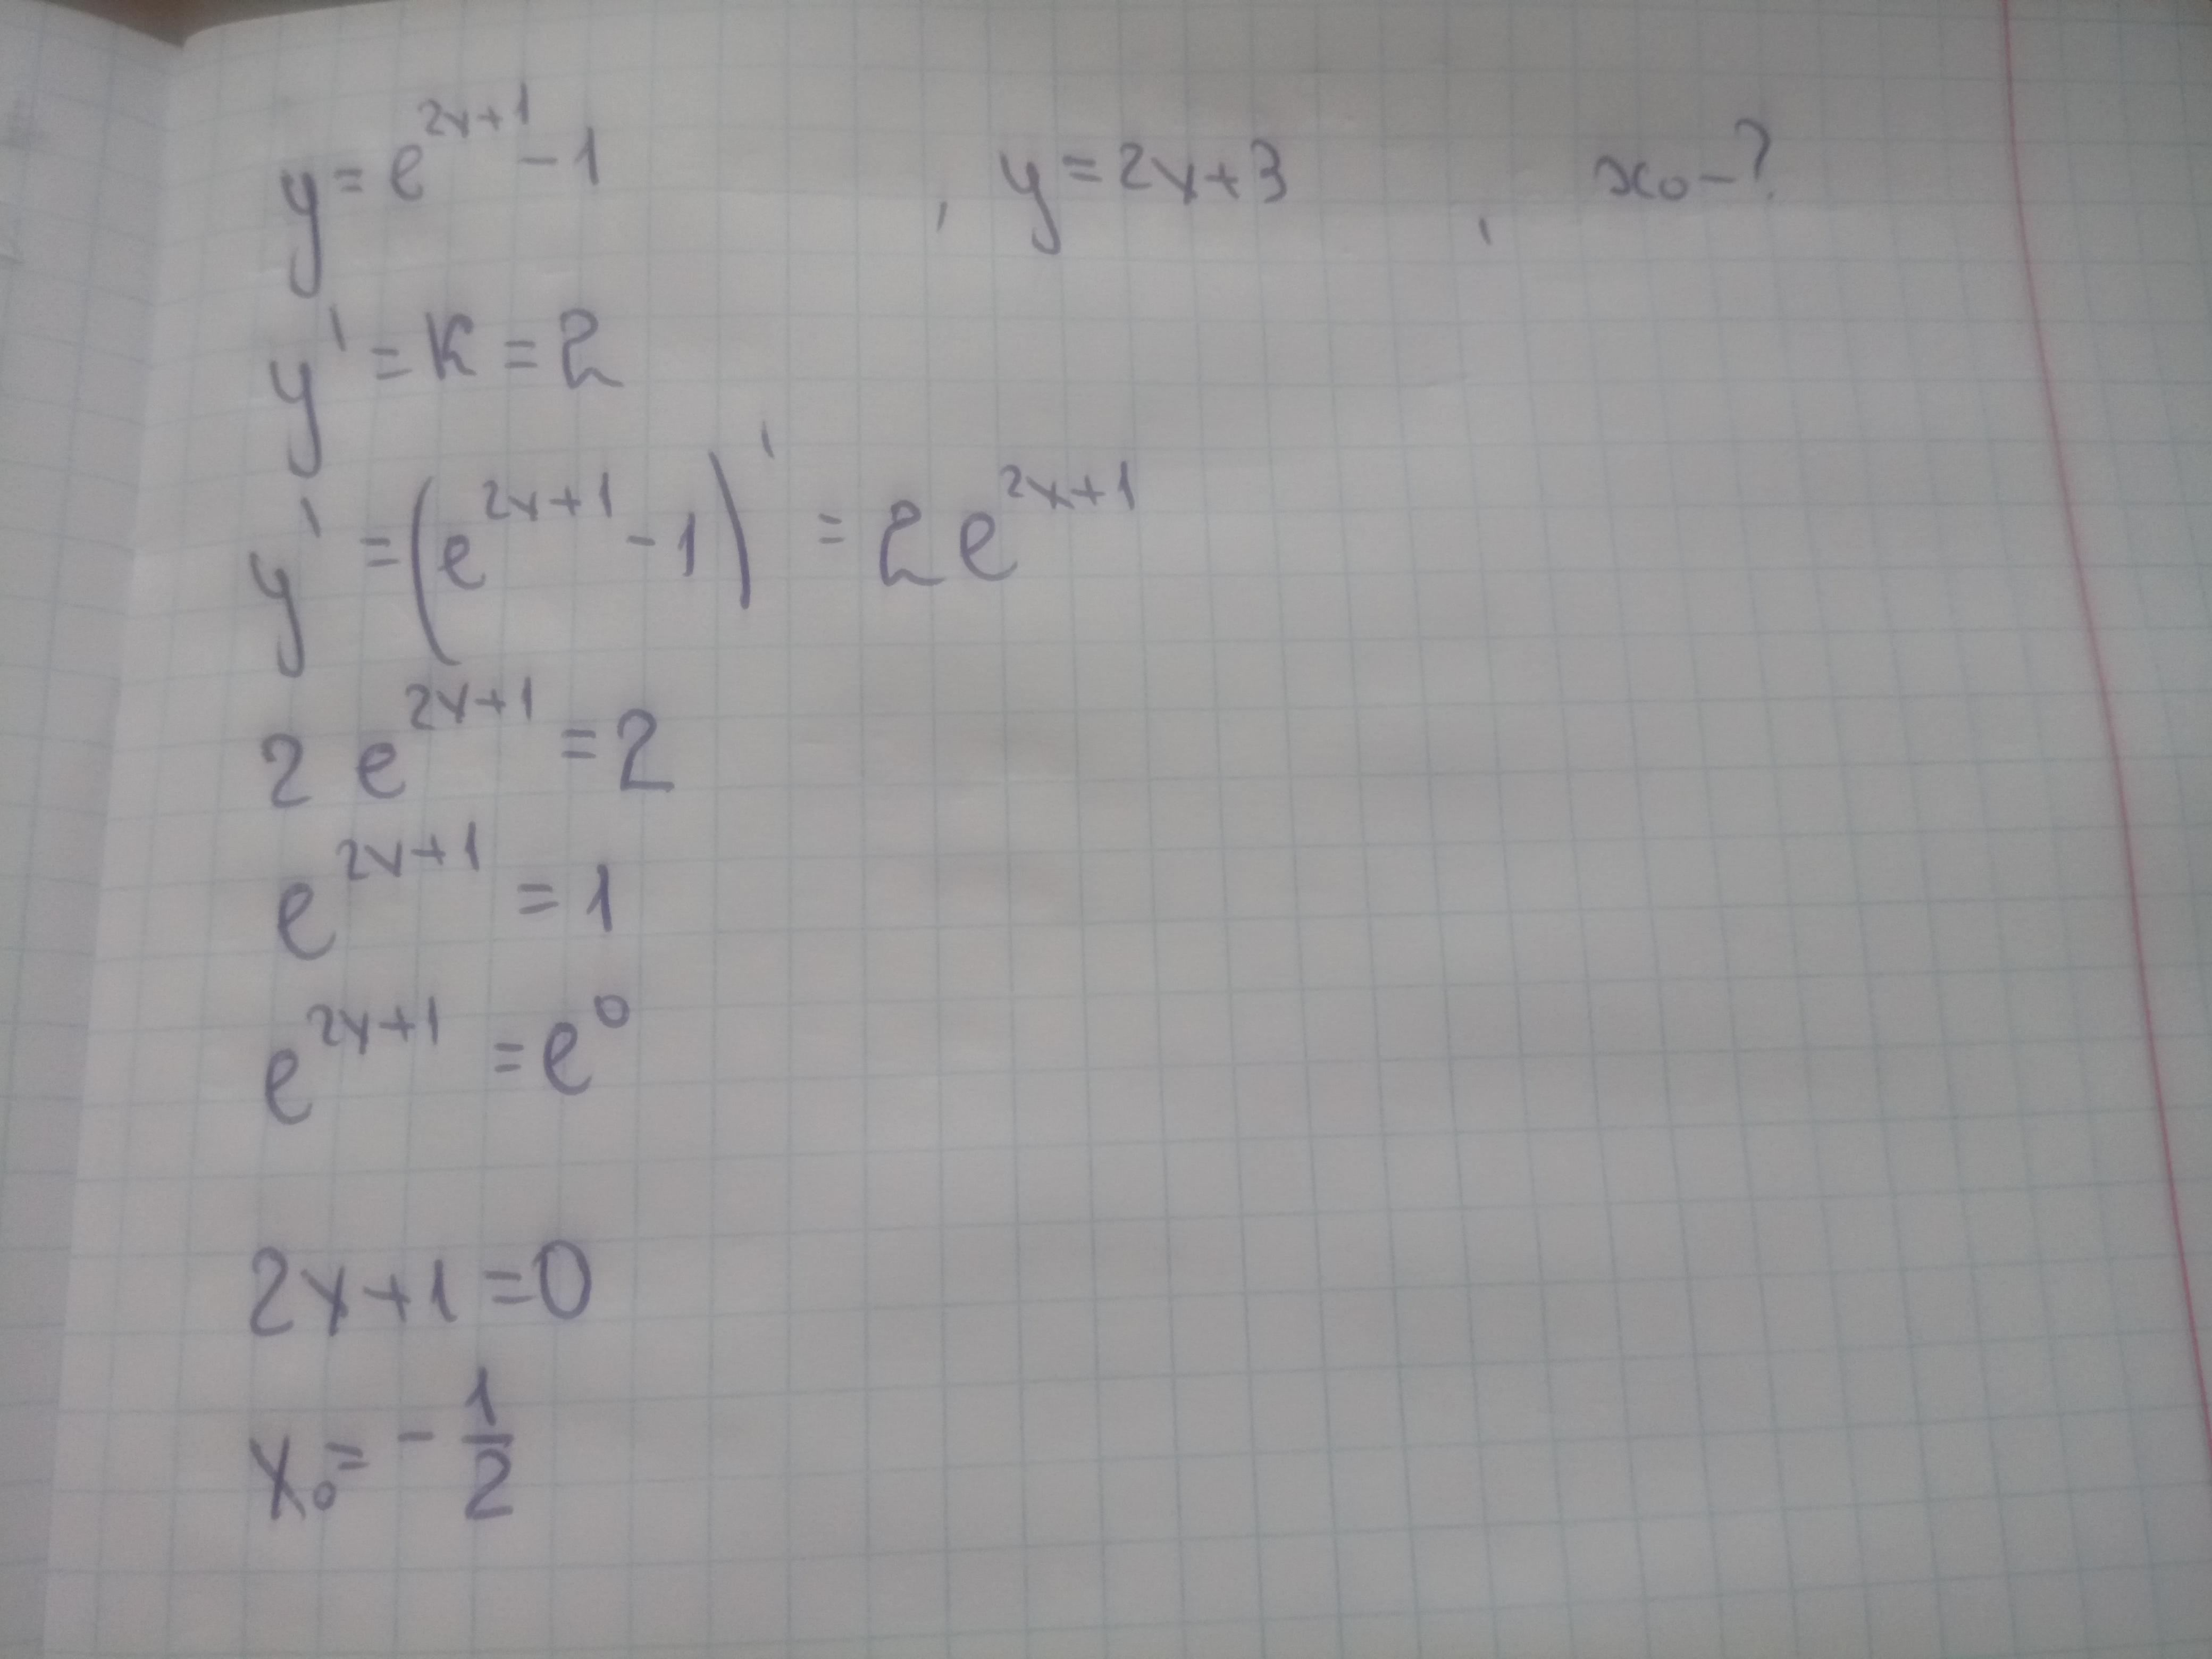 y = e^{2x+1} - 1 , y = 2x+3 , x₀ - ?
y' = K = 2
y' = (e^{2x+1} - 1)' = 2 e^{2x+1}
2 e^{2x+1} = 2
e^{2x+1} = 1
e^{2x+1} = e^0
2x+1 = 0
x₀ = - 1/2